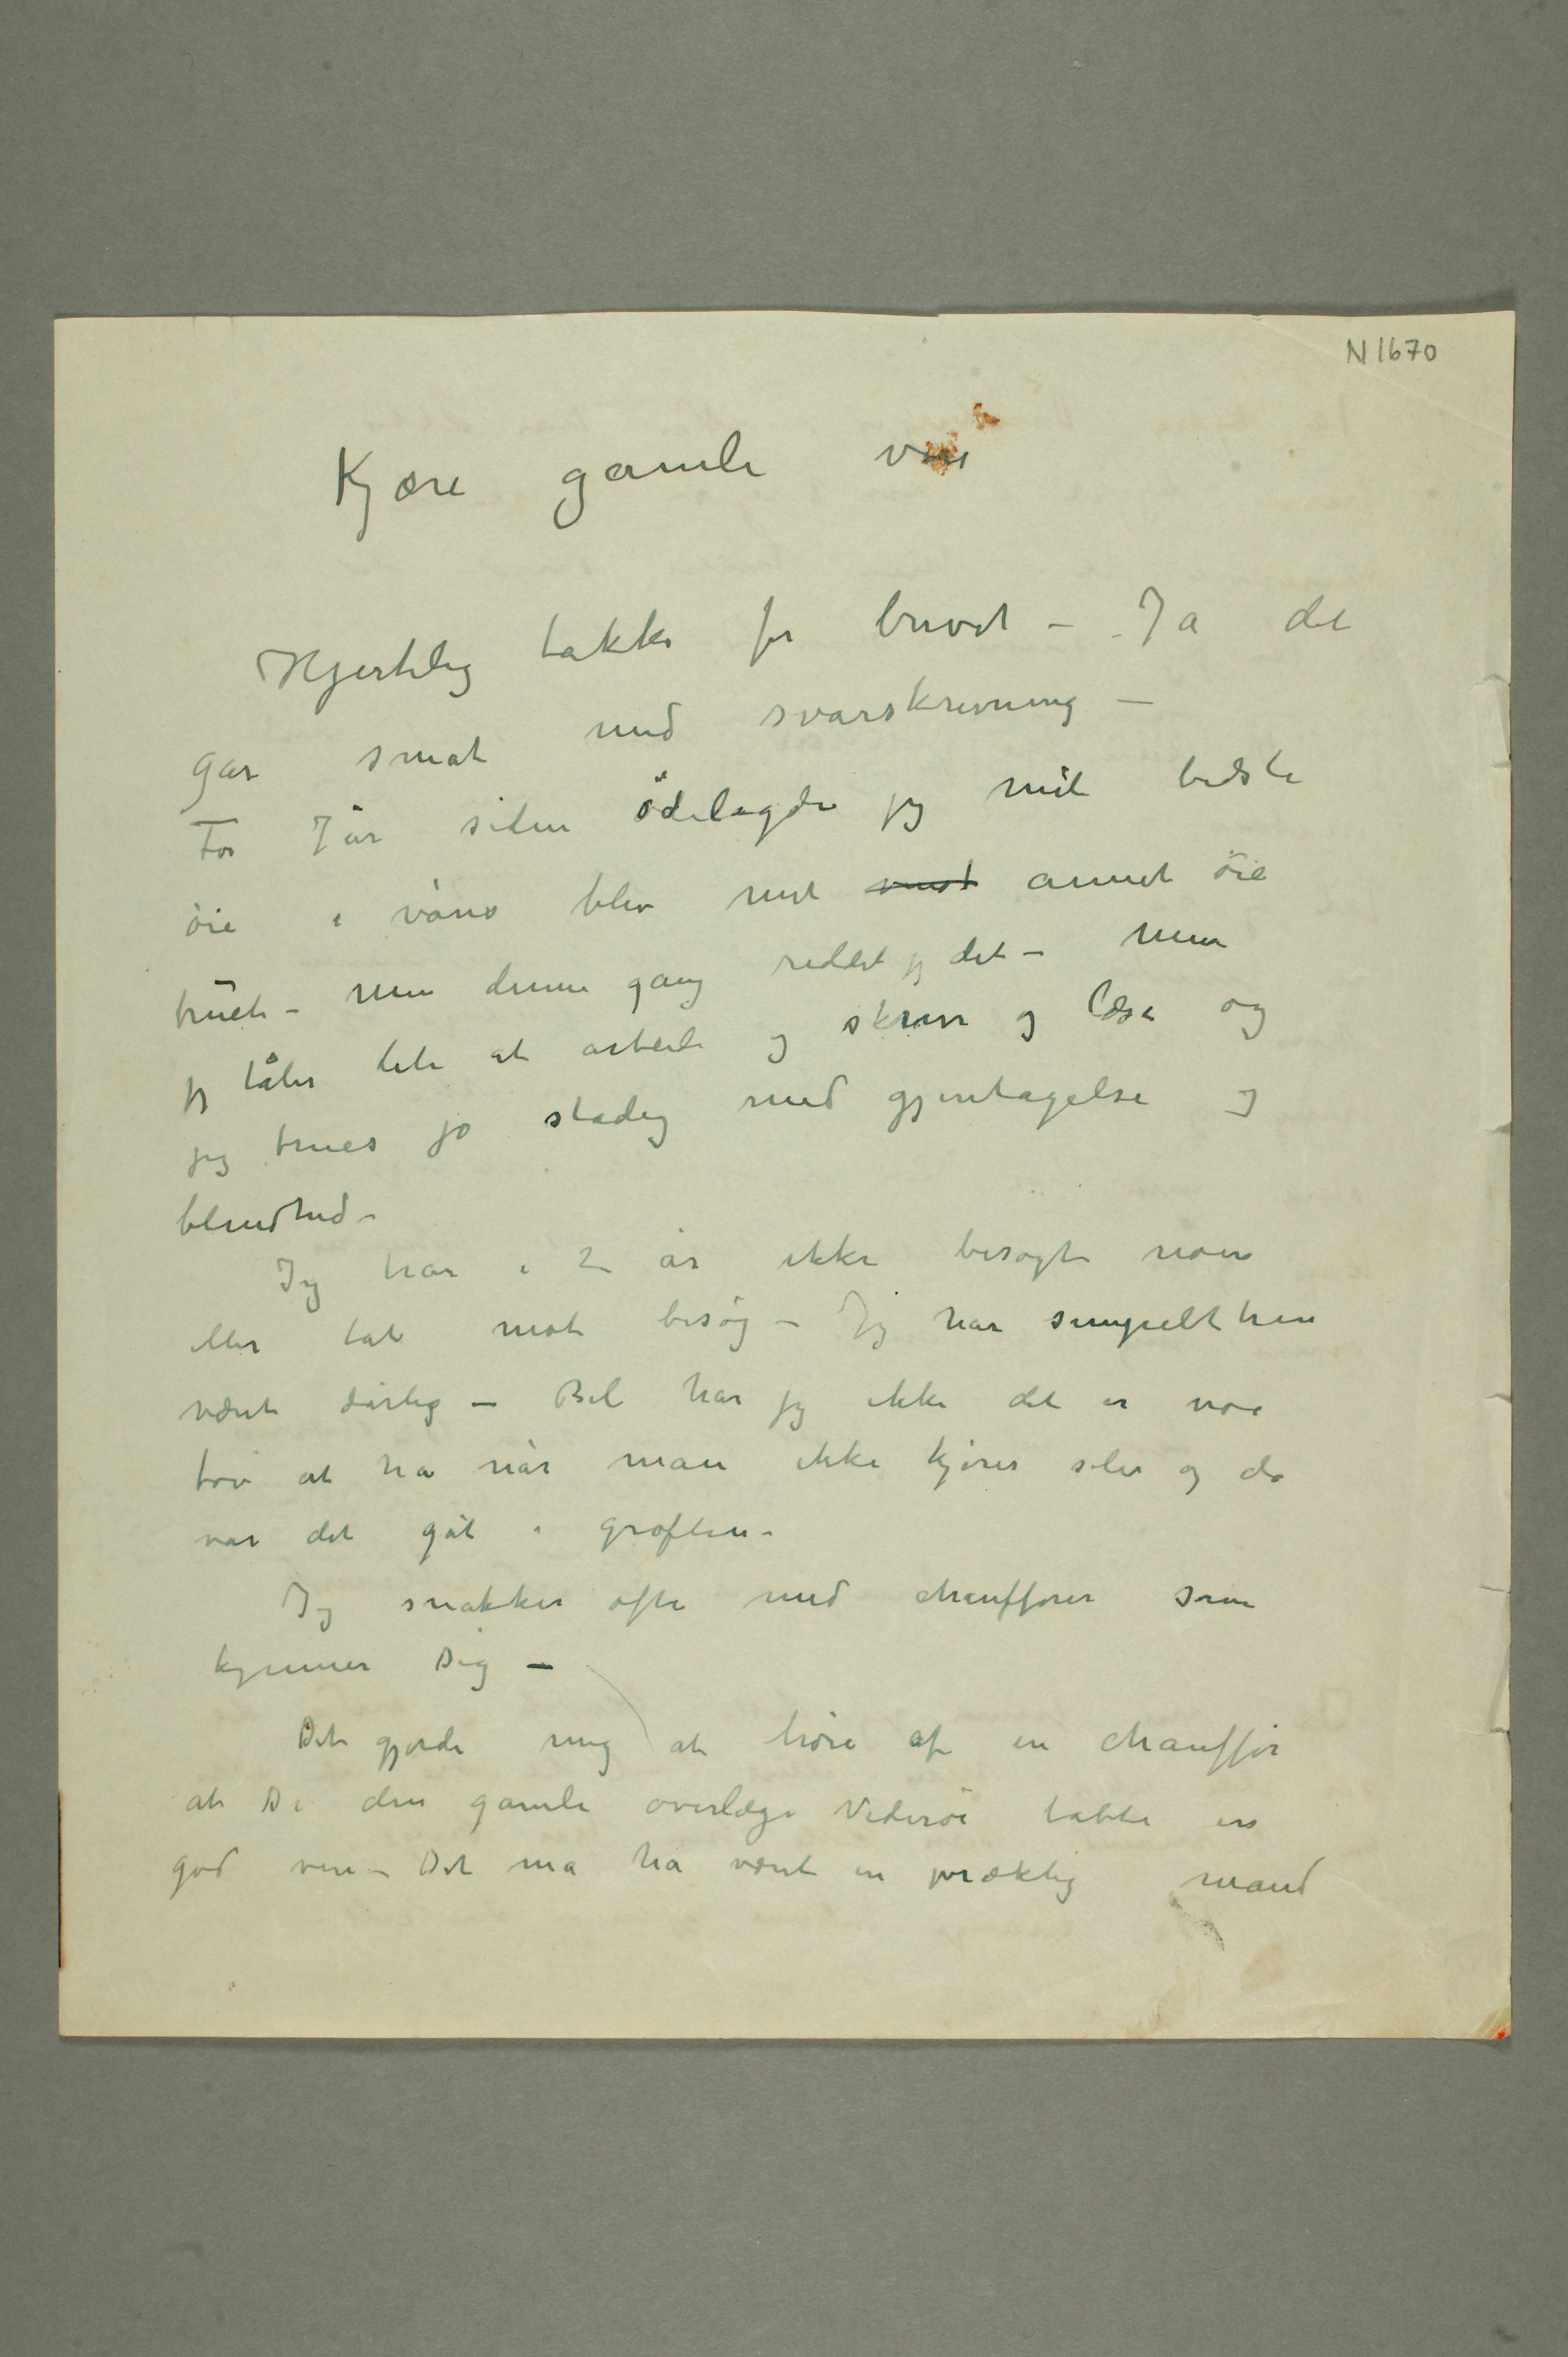 N 1670
Kjære gamle ven
Hjertelig takke for brevet – Ja det
går småt med svarskrivning –
For 7 år siden ödelagde jeg mit bedste
öie i våres blev mit annet öie
truet – Men denne gang reddet jeg det – Men
jeg tåler lite at arbeide og skrive og læse og
jeg trues jo stadig med gjentagelse og
blindhed –
Jeg har i 2 år ikke besøgt noen
eller tat mot besøg – Jeg har simpelthen
været dårlig – Bil har jeg ikke det er noe
tøv at ha når man ikke kjører selv og da
var det gåt i grøften –
Jeg snakker ofte med chauffører som
kjenner Dig –
Det gjorde mig at høre af en chauffør
at De den gamle overlæge Vederöe tabte en
god ven – Det må ha været en præktig mand